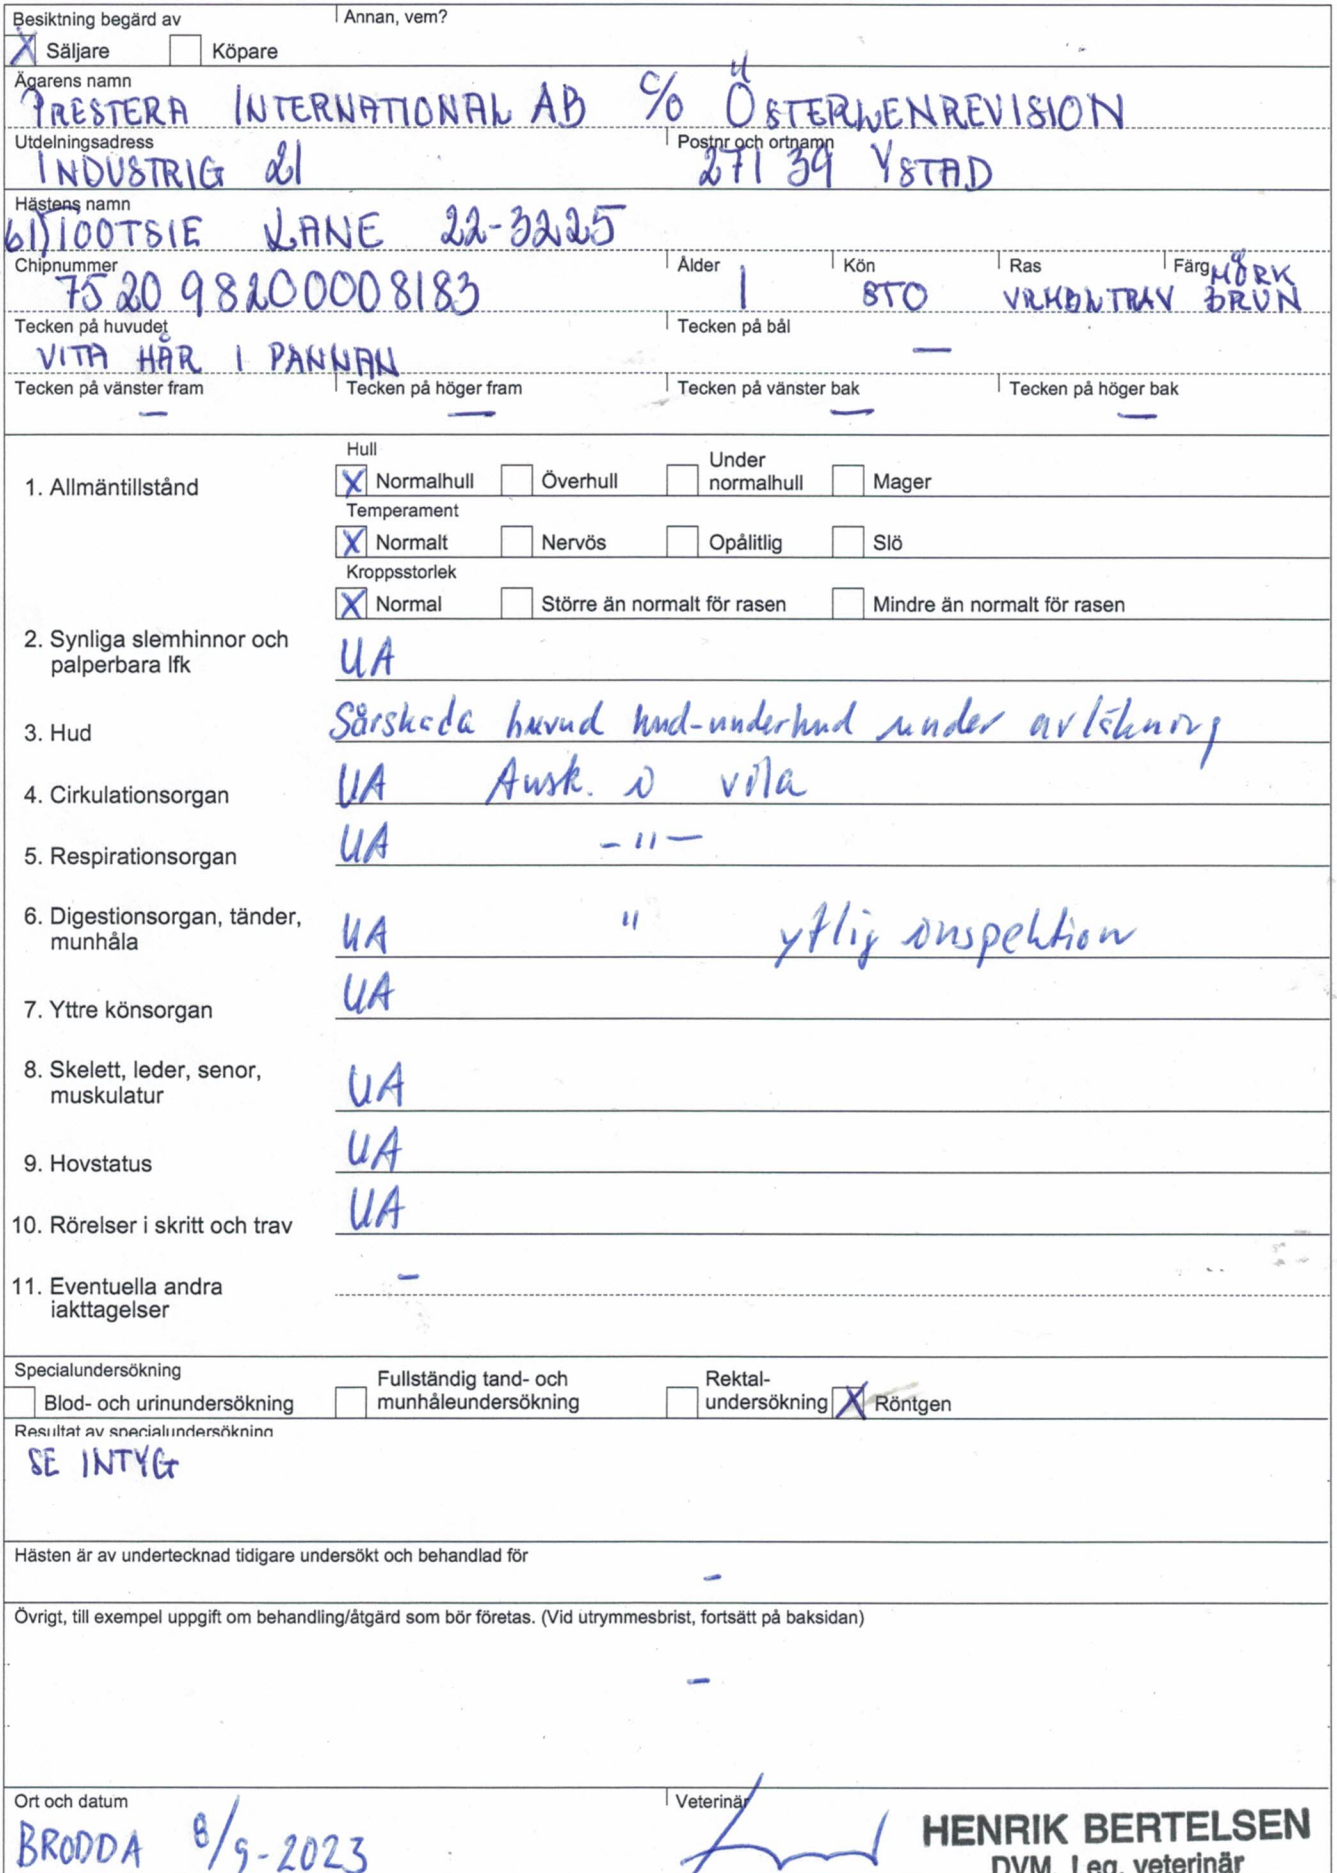 Besiktning begärd av Annan, vem?
X Säljare Köpare
Ägarens namn
PRESTERA INTERNATIONAL AB C/O ÖSTERLENREVISION
Utdelningsadress Postnr och ortnamn
INDUSTRIG 21 271 39 YSTAD
Hästens namn
61) TOOTSIE LANE 22-3225
Chipnummer Ålder Kön Ras Färg
752098200008183 1 STO VRMBLTRAV MÖRK BRUN
Tecken på huvudet Tecken på bål
VITA HÅR I PANNAN —
Tecken på vänster fram Tecken på höger fram Tecken på vänster bak Tecken på höger bak
— — — —
Hull
1. Allmäntillstånd X Normalhull Överhull Under normalhull Mager
Temperament
X Normalt Nervös Opålitlig Slö
Kroppsstorlek
X Normal Större än normalt för rasen Mindre än normalt för rasen
2. Synliga slemhinnor och
palperbara lfk UA
3. Hud Sårskada huvud hud-underhud under avläkning
4. Cirkulationsorgan UA Ausk. i vila
5. Respirationsorgan UA -"-
6. Digestionsorgan, tänder,
munhåla UA " ytlig inspektion
7. Yttre könsorgan UA
8. Skelett, leder, senor,
muskulatur UA
9. Hovstatus UA
10. Rörelser i skritt och trav UA
11. Eventuella andra
iakttagelser –
Specialundersökning
Blod- och urinundersökning Fullständig tand- och munhåleundersökning Rektal-undersökning X Röntgen
Resultat av specialundersökning
SE INTYG
Hästen är av undertecknad tidigare undersökt och behandlad för
–
Övrigt, till exempel uppgift om behandling/åtgärd som bör företas. (Vid utrymmesbrist, fortsätt på baksidan)
–
Ort och datum Veterinär
BRODDA 8/9-2023 HENRIK BERTELSEN
DVM, Leg. veterinär